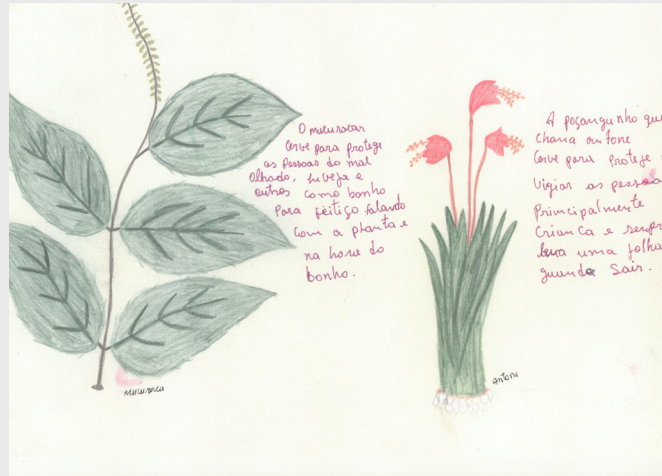 O mucuracar
cerve para protege
as pessoas do mal
olhado, inveja e
outros como bonho
Para feitiço falando
com a planta e
na hora do
bonho.
mucuraca
A poçanguinho que
chama antone
cerve para protege
vigiar as pessoa
principalmente
criança e sempr
leva uma folha
quando sair.
Antone